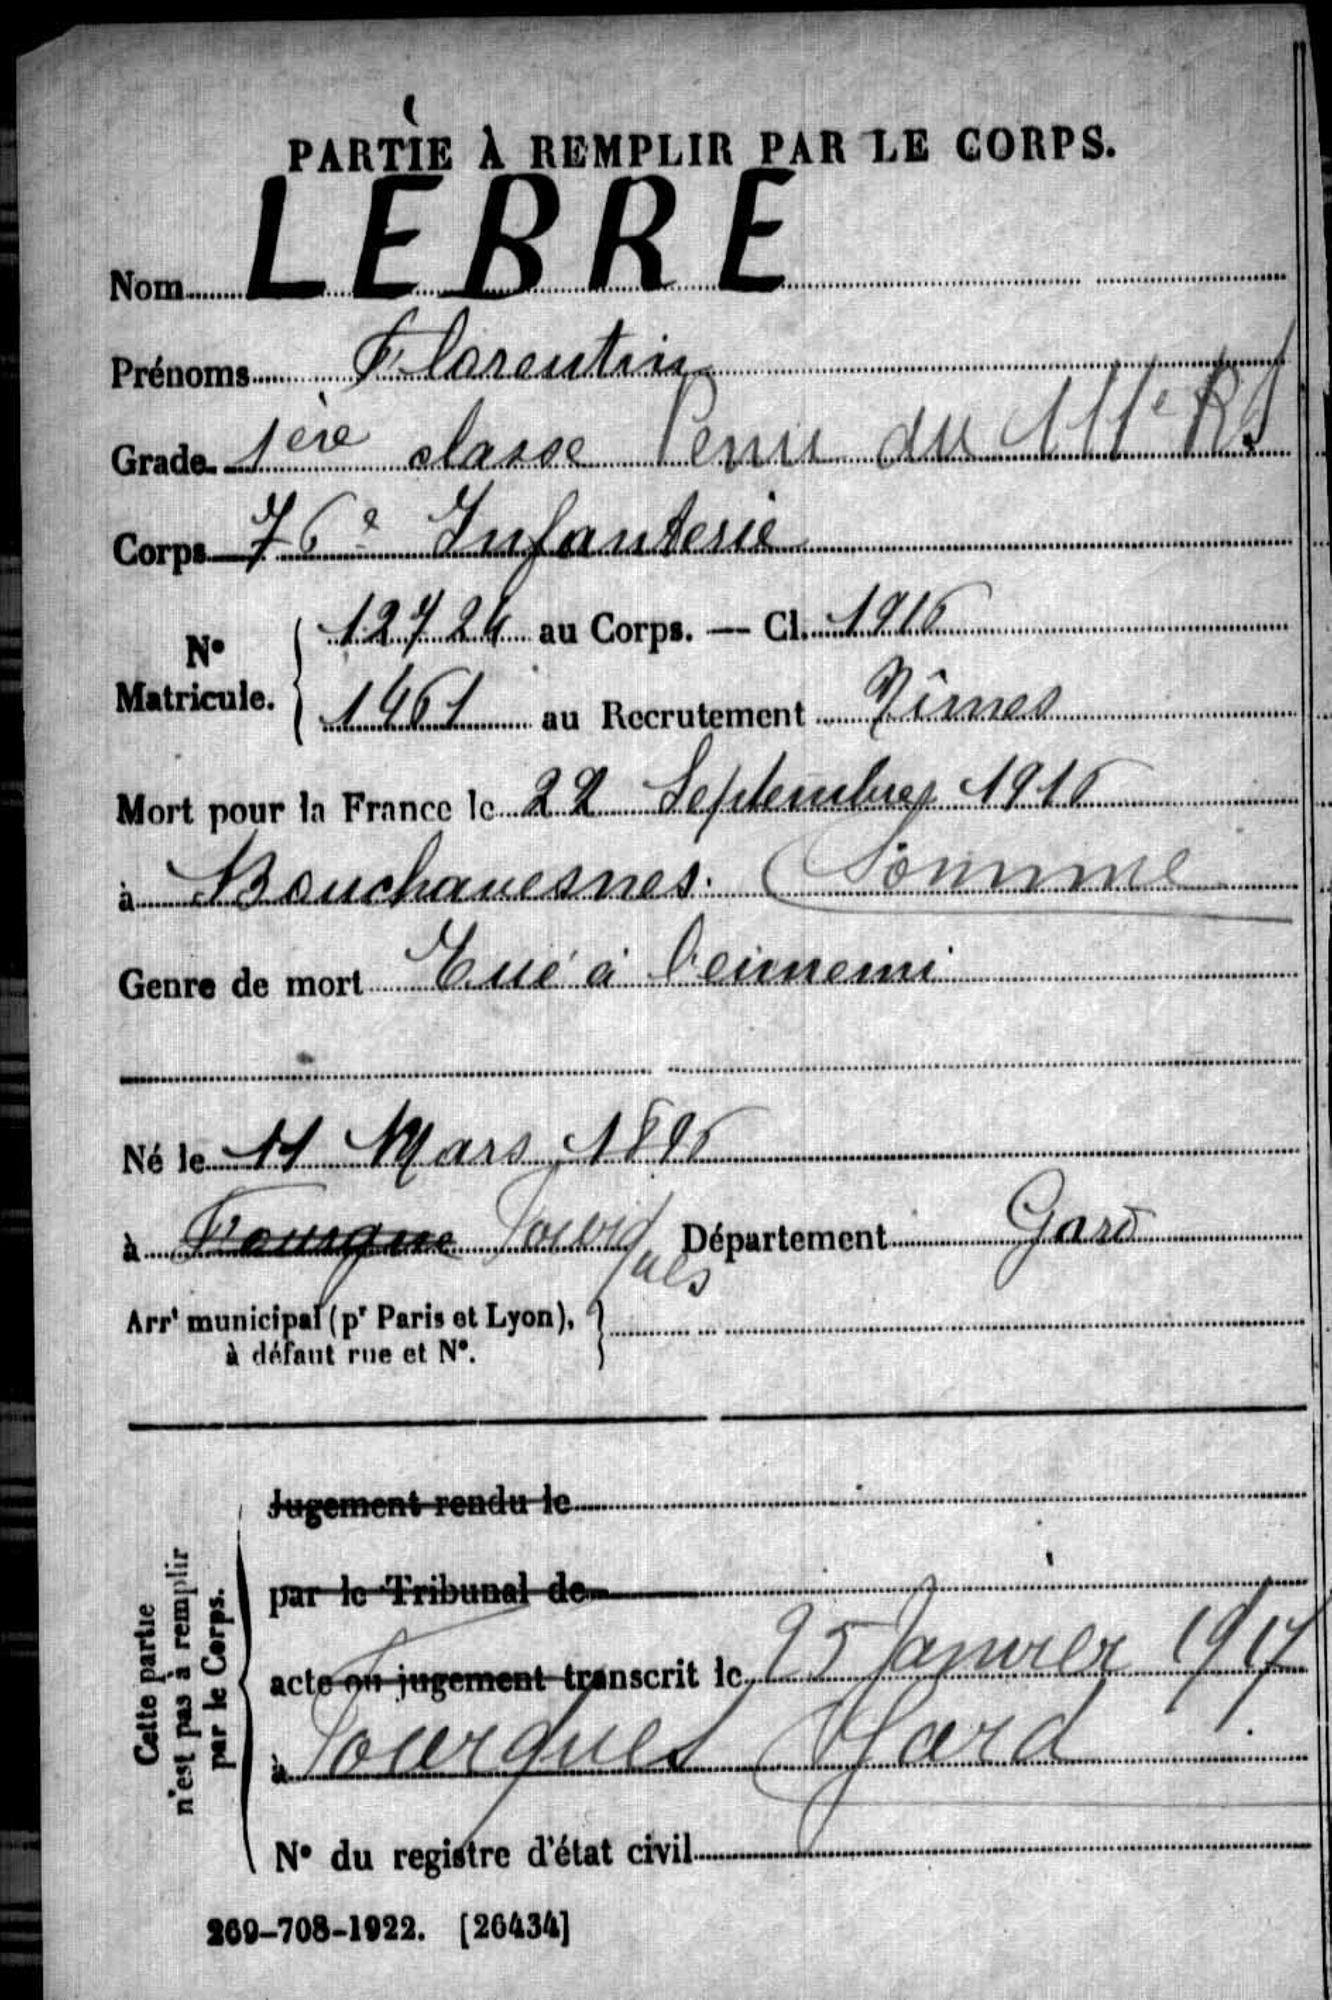 PARTIE À REMPLIR PAR LE CORPS.
Nom LEBRE
Prénoms Florentin
Grade 1ère classe Venu du 111e RI
Corps 76e Infanterie
N° Matricule. { 12724 au Corps. — Cl. 1916
1461 au Recrutement Nîmes
Mort pour la France le 22 Septembre 1916
à Bouchavesnes. (Somme
Genre de mort Tué à l'ennemi
Né le 11 Mars 1896
à Fourque Fourques Département Gard
Arrt municipal (pr Paris et Lyon), }
à défaut rue et N°.
Cette partie
n'est pas à remplir
par le Corps.
Jugement rendu le
par le Tribunal de
acte ou jugement transcrit le 25 Janvier 1917
à Fourques (Gard
N° du registre d'état civil
269-708-1922. [26434]